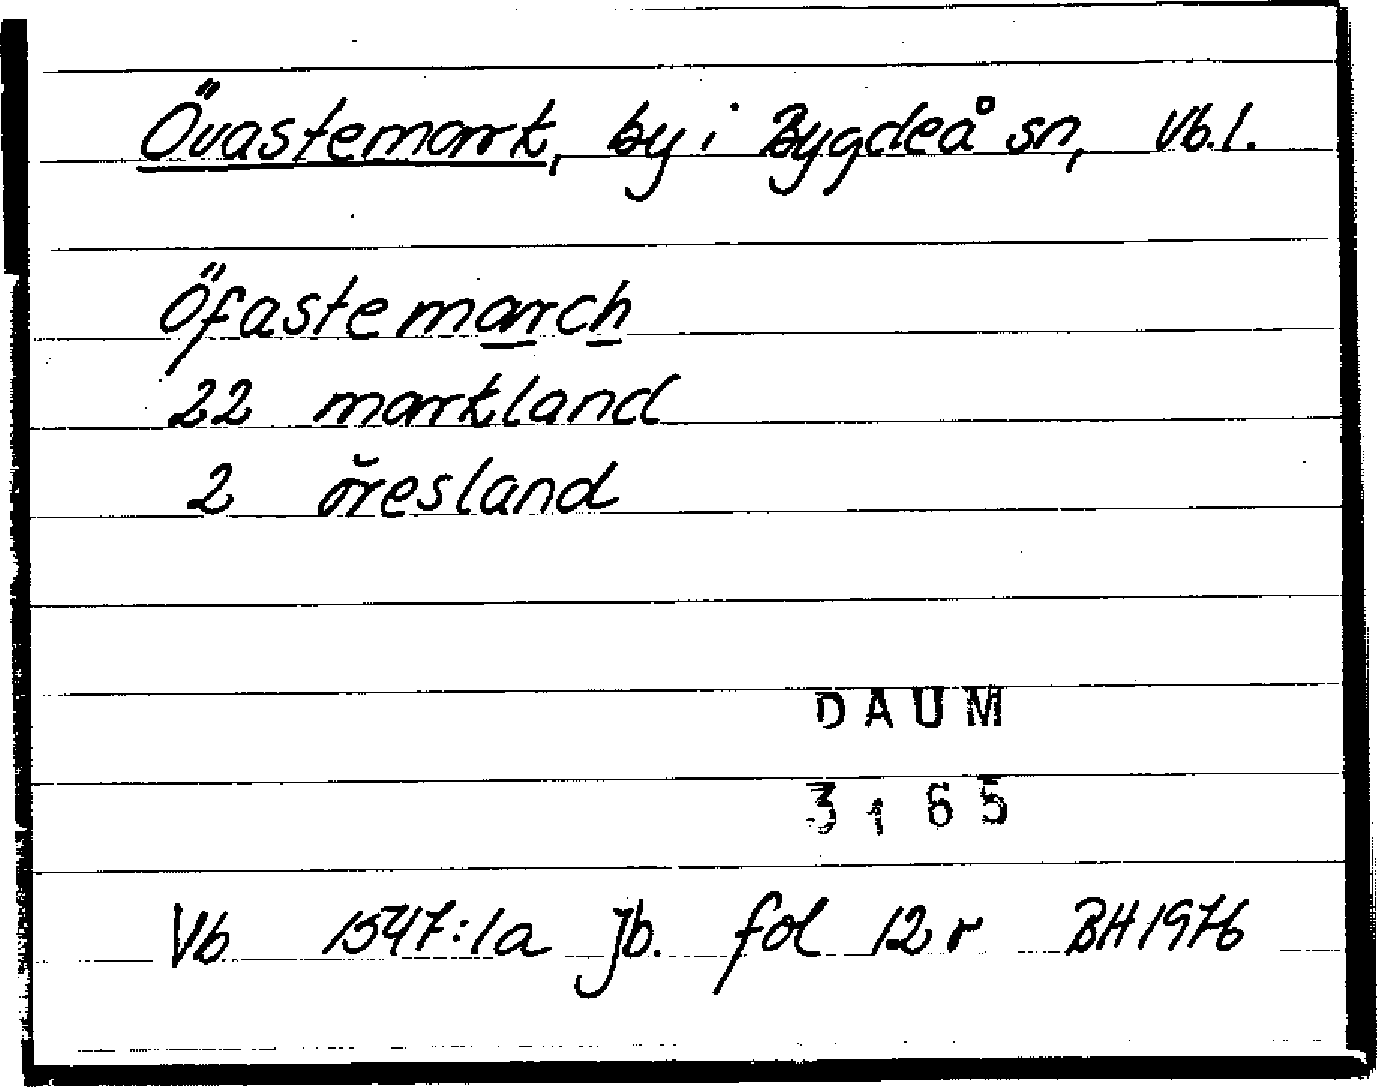 Övastemark, by i Bygdeå sn, Vb.l.
Öfastemarch
22 markland
2 öresland
DAUM
3165
Vb 1547:1a Jb. fol 12 r BH 1976